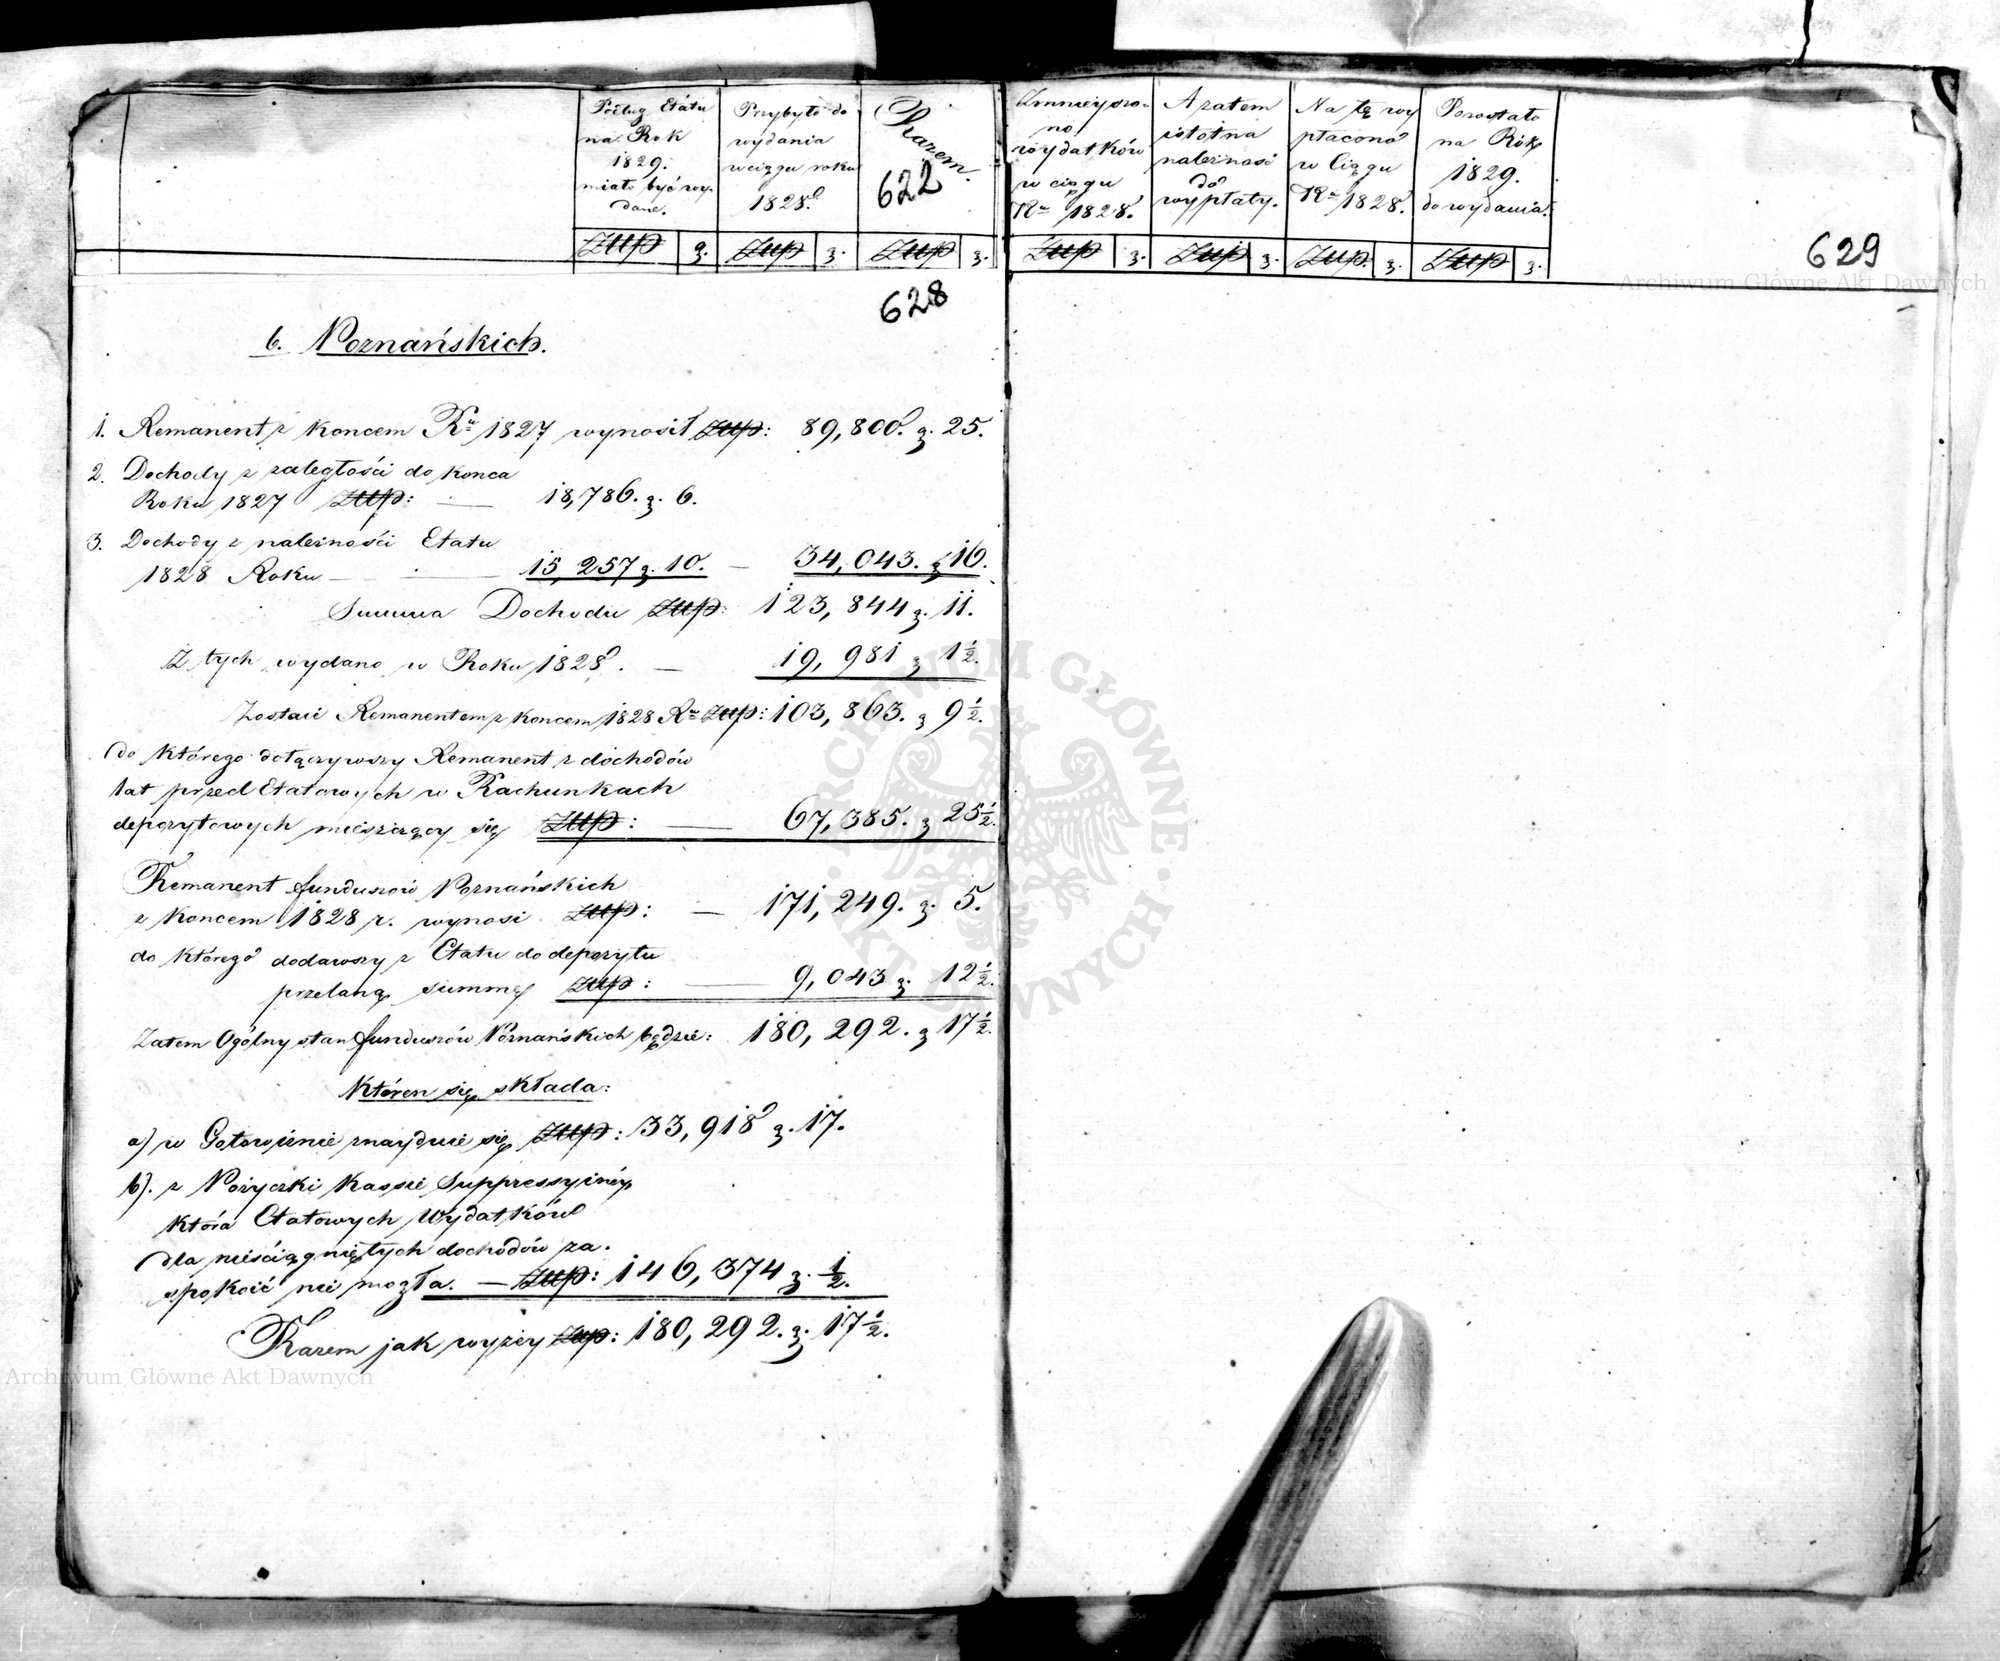 Podług Etatu
na Rok
1829.
miało być wy-
dane.
Przybyło do
wydania
w ciągu roku
1828.
Razem.
622
Zmnieyszo-
no
wydatków
w ciągu
Ru 1828.
A zatem
istotna
należność
do
wypłaty.
Na tę wy
płacono
w Ciągu
Ru 1828.
Pozostało
na Rok
1829.
do wydania.
Złlp g. Złlp g. Złlp g. Złlp g. Złlp g. Złlp g. Złlp g.
629
628
6. Poznańskich.
1. Remanent z koncem Ru 1827 wynosił Złlp: 89,800. g. 25.
2. Dochody z zaległości do konca
Roku 1827 Złlp: — 18,786. g. 6.
3. Dochody z należności Etatu
1828 Roku — — 15,257 g. 10. — 34,043. g 16.
Summa Dochodu Złlp: 123,844 g. 11.
Z tych wydano w Roku 1828. — 19,981 g 1½.
Zostaie Remanentem z koncem 1828 Ru Złlp: 103,863. g 9½.
do którego dołączywszy Remanent z dochodów
lat przed Etatowych w Rachunkach
depozytowych mieszczący się Złlp: — 67,385. g 25½.
Remanent funduszów Poznańskich
z koncem 1828 r. wynosi Złlp: — 171,249. g. 5.
do którego dodawszy z Etatu do depozytu
przelaną summę Złlp: — 9,043 g. 12½.
Zatem Ogólny stan funduszów Poznańskich będzie: 180,292. g 17½.
Któren się składa:
a) w Gotowiznie znayduie się Złlp: 33,918 g. 17.
b). z Pożyczki Kassie Suppressyinéy
która Etatowych Wydatków
dla nieściągniętych dochodów za-
spokoić nie mogła. — Złlp: 146,374 g. ½.
Razem jak wyżey Złlp: 180,292. g. 17½.
Archiwum Główne Akt Dawnych
Archiwum Główne Akt Dawnych
ARCHIWUM GŁÓWNE AKT DAWNYCH